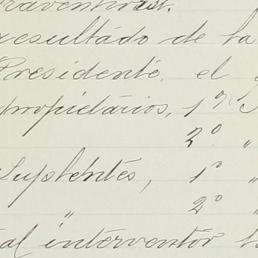 resultado de la
Presidente, el
propietarios, 1er
2º "
Suplentes, 1º "
" 2º "
interventor